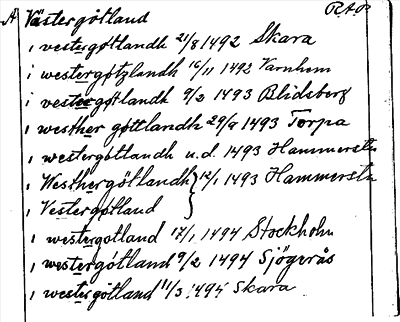 A Västergötland R.A.P.
i vestergötlandh 21/8 1492 Skara
i westergötzlandh 16/11 1492 Varnhem
i vestergötlandh 9/2 1493 Blidsberg
i westher göttlandh 29/9 1493 Torpa
i westergötlandh u.d. 1493 Hammerstn
i Westhergötlandh } 12/1 1493 Hammerstn
i Vestergötland
i westergötland 17/1 1494 Stockholm
i westergötland 9/2 1494 Sjögerås
i westergötland 11/3 1494 Skara